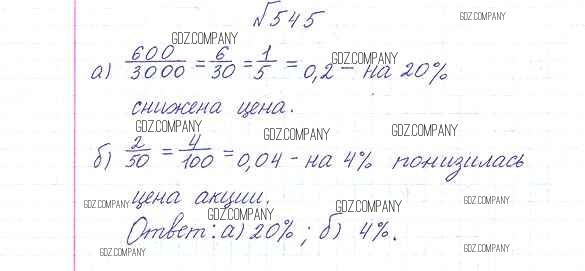 №545
GDZ.COMPANY
GDZ.COMPANY
GDZ.COMPANY
а) 600/3000 = 6/30 = 1/5 = 0,2 - на 20%
снижена цена.
GDZ.COMPANY
GDZ.COMPANY
GDZ.COMPANY
б) 2/50 = 4/100 = 0,04 - на 4% понизилась
цена акции.
GDZ.COMPANY
GDZ.COMPANY
GDZ.COMPANY
GDZ.COMPANY
Ответ: а) 20%; б) 4%.
GDZ.COMPANY
GDZ.COMPANY